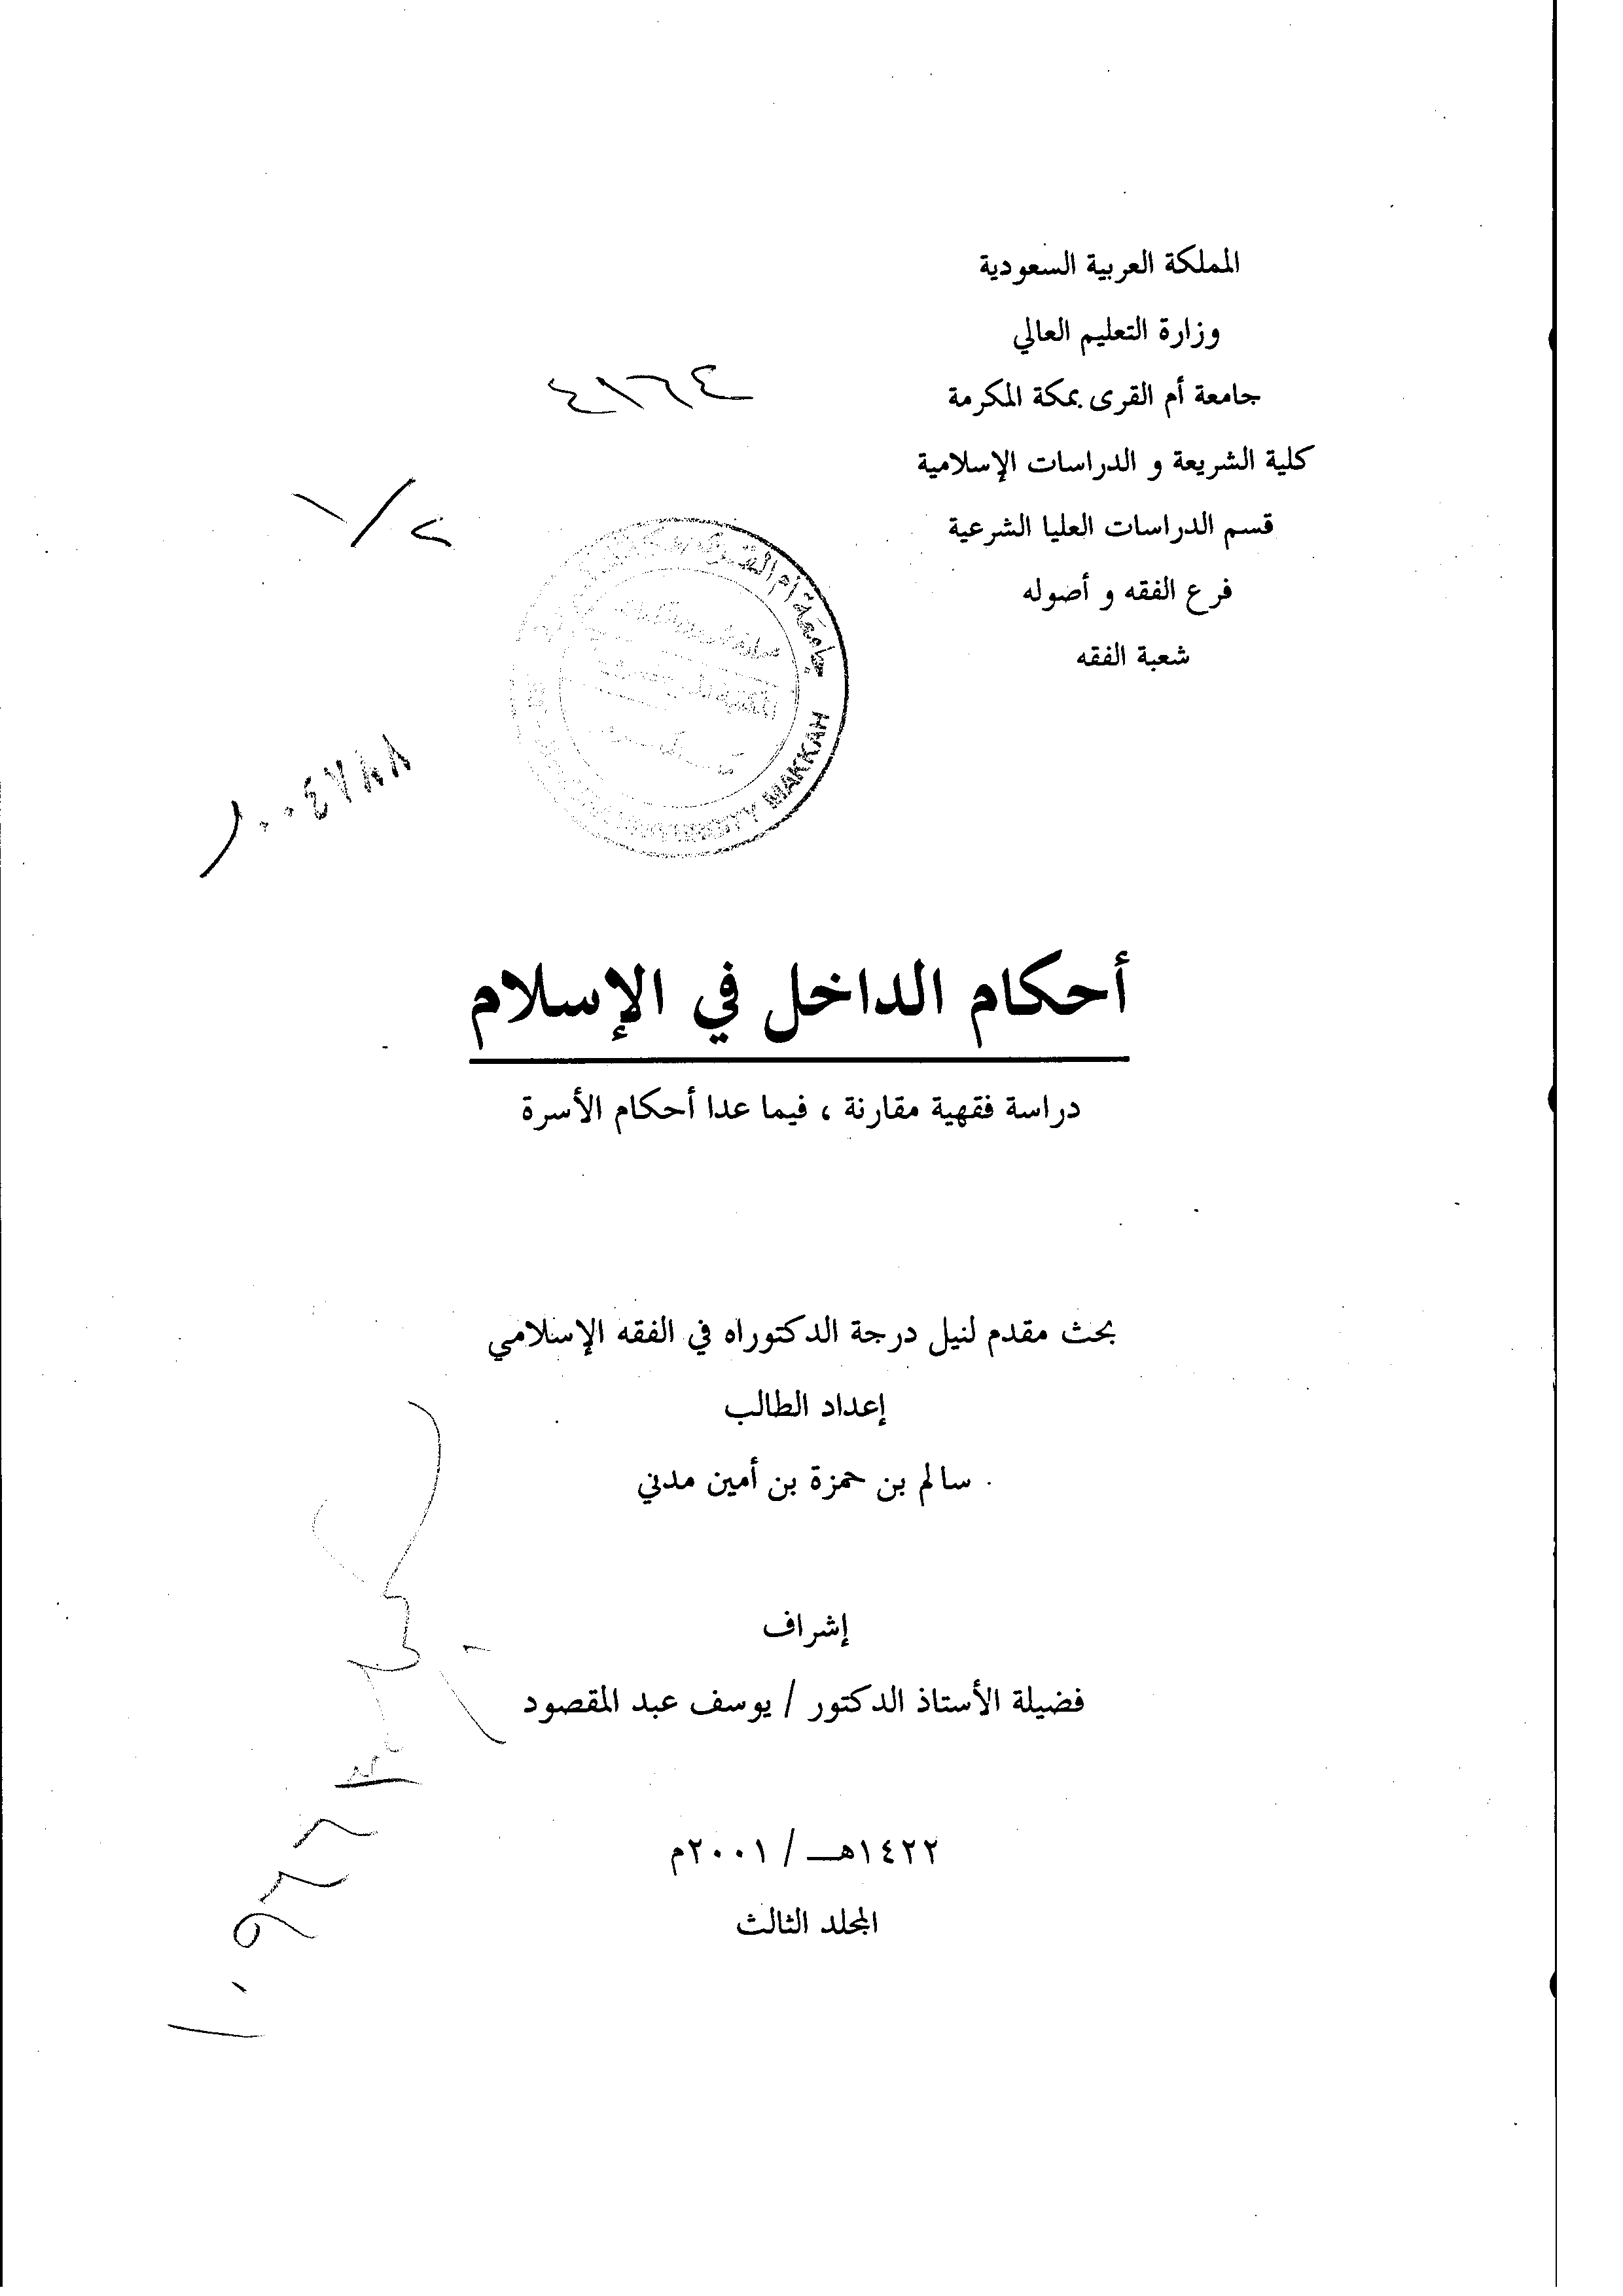 المملكة العربية السعودية
وزارة التعليم العالي
جامعة أم القرى بمكة المكرمة
كلية الشريعة و الدراسات الإسلامية
قسم الدراسات العليا الشرعية
فرع الفقه و أصوله
شعبة الفقه
٤١٦٤
جامعة أم القرى
MAKKAH
أحكام الداخل في الإسلام
دراسة فقهية مقارنة ، فيما عدا أحكام الأسرة
بحث مقدم لنيل درجة الدكتوراه في الفقه الإسلامي
إعداد الطالب
سالم بن حمزة بن أمين مدني
إشراف
فضيلة الأستاذ الدكتور / يوسف عبد المقصود
١٤٢٢هـ / ٢٠٠١م
المجلد الثالث